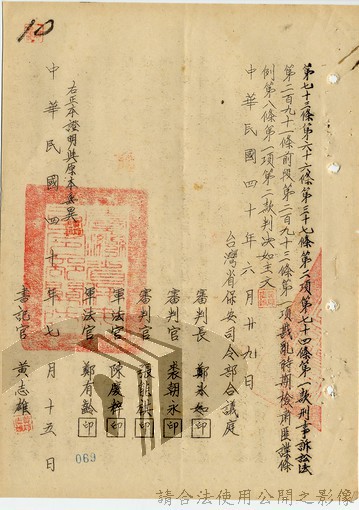 第七十三條第六十六條第三十七條第二項第七十四條第一款刑事訴訟法
第二百九十一條前段第二百九十三條第一項戡亂時期檢肅匪諜條
例第八條第一項第二款判決如主文
中華民國四十年六月廿九日
台灣省保安司令部合議庭
審判長 鄭
審判官 裴朝永 印
審判官 印
軍法官 陳慶粹 印
軍法官 鄭有齡 印
右正本證明與原本無異
中華民國四十年七月十五日
書記官 黃志雄
069
請合法使用公開之影像